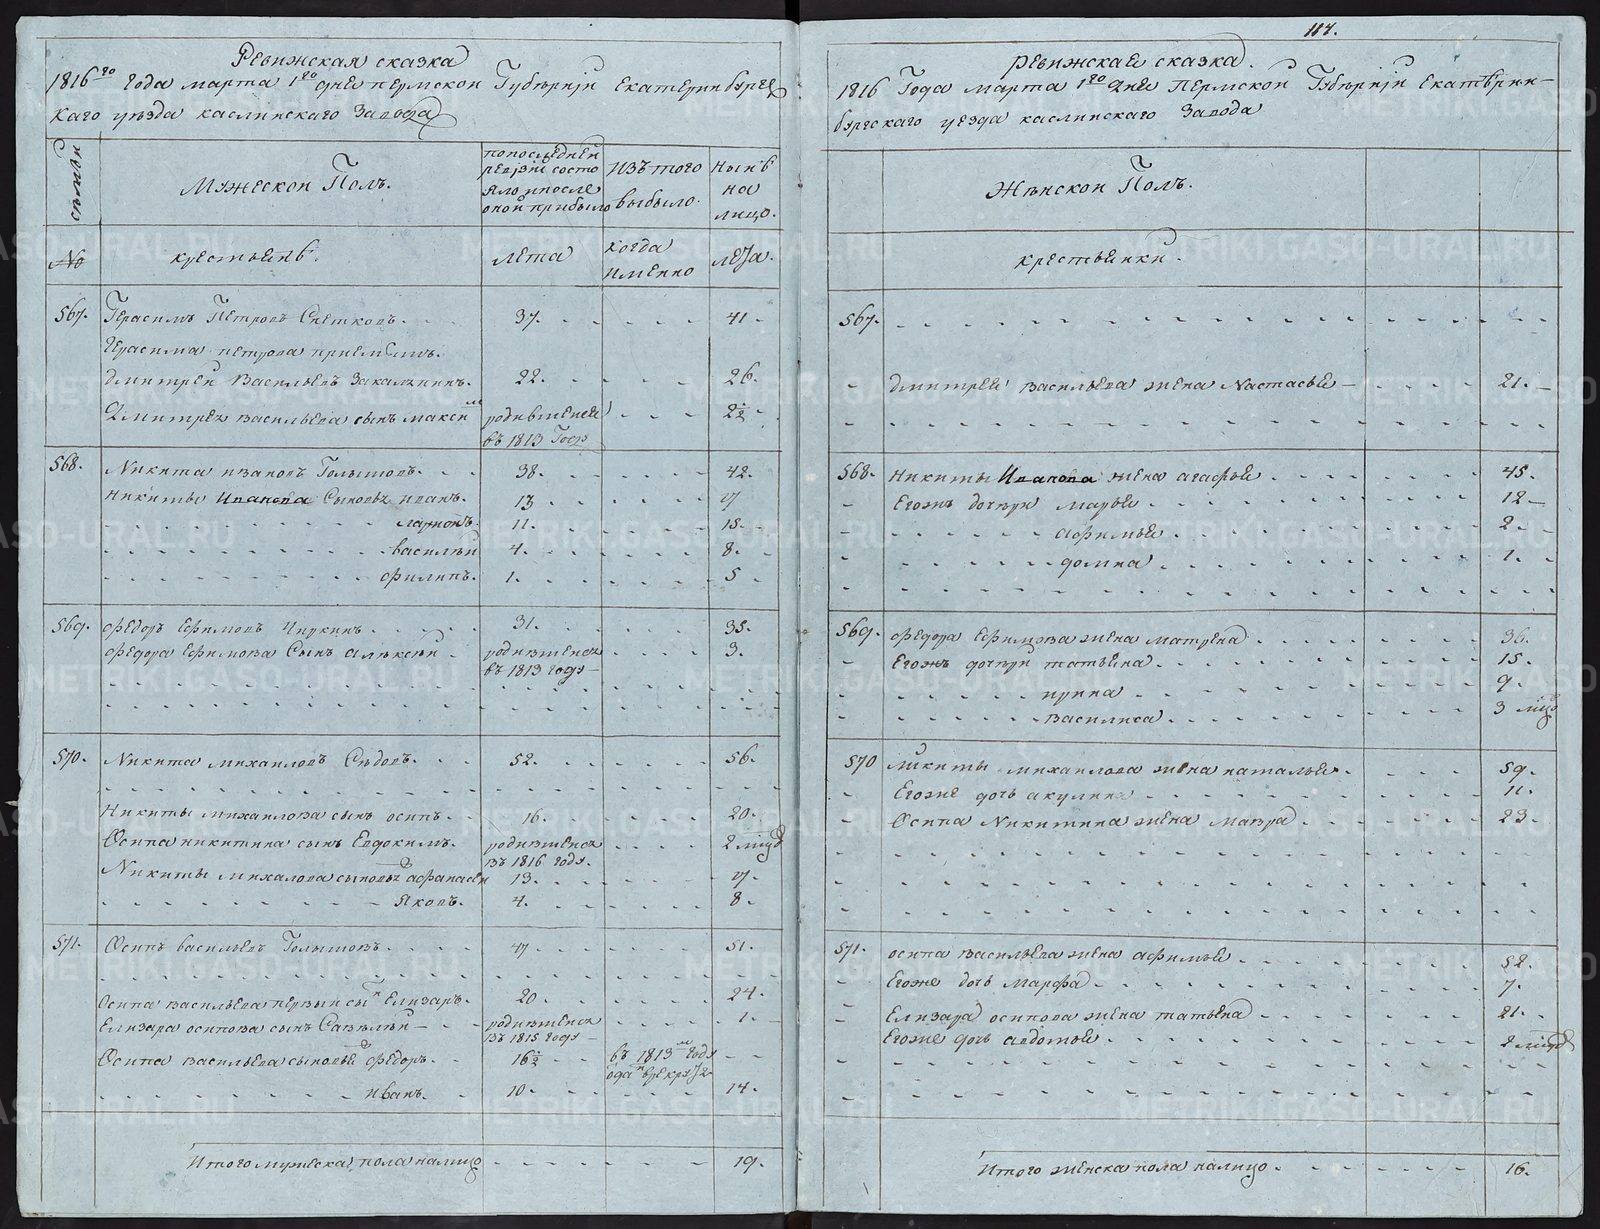 Ревижская сказка
1816го года марта 1го дня пермской Губернїи Екатеринбургс
каго уезда каслинскаго Завода
семьи
Мужеской Полъ.
попоследней
ревїзїи состо
яло ипосле
оной прибыло
Изъ того
выбыло.
Ныне
на
лицо.
№
крестьянѣ.
лета
когда
именно
лета.
567. Герасимъ Петровъ Снетковъ. 37. 41.
Герасима петрова приемышъ.
дмитрей Васильевъ Закалкинъ. 22. 26.
Дмитрея васильева сынъ максим родившейся 2½
въ 1813 Году
568. Никита ивановъ Голышовъ. 38. 42.
Никиты Иванова Сыновья иванъ. 13 17
ларионъ. 11. 15.
василеи 4. 8.
филипъ. 1. 5
569. федоръ Ефимовъ Чиркинъ 31. 35.
федора Ефимова Сынъ алексѣи родившеися 3.
въ 1813 году
570. Никита михаиловъ Седовъ. 52. 56.
Никиты михаилова сынъ осипъ 16. 20.
Осипа никитина сынъ Евдокимъ. родившеися 2 мцъ
въ 1816 году.
Никиты михалова сыновья афанасеи 13. 17.
Яковъ. 4. 8.
571. Осипъ васильевъ Голышовъ. 47 51.
Осипа васильева первыи сынъ Елизаръ. 20. 24.
Елизара осипова сынъ Савелѣи родившеися 1.
въ 1815 году
Осипа васильева сыновья федоръ. 16½ въ 1813м году
отдан в рекруты
иванъ. 10. 14.
Итого мужеска пола налицо 19.
117.
Ревижская сказка.
1816 Года марта 1го дня Пермской Губернїи Екатерин-
бургскаго уезда каслинскаго Завода
Женской Полъ.
крестьянки.
567.
дмитрея васильева жена Настасья 21.
568. Никиты Иванова жена агафья 45.
Егожъ дочери марья 12
афимья. 2.
домна. 1.
569. федора Ефимова жена матрена 36.
Егожъ дочери татьяна. 15.
ирина 9.
василиса 3 мцъ
570 никиты михаилова жена наталья. 59.
Егоже дочь акулина 11.
Осипа Никитина жена мавра 23.
571. осипа васильева жена афимья 52.
Егоже дочь марфа 7.
Елизара осипова жена татьяна 21.
Егоже дочь авдотья 2 мцъ
Итого женска пола налицо. 16.